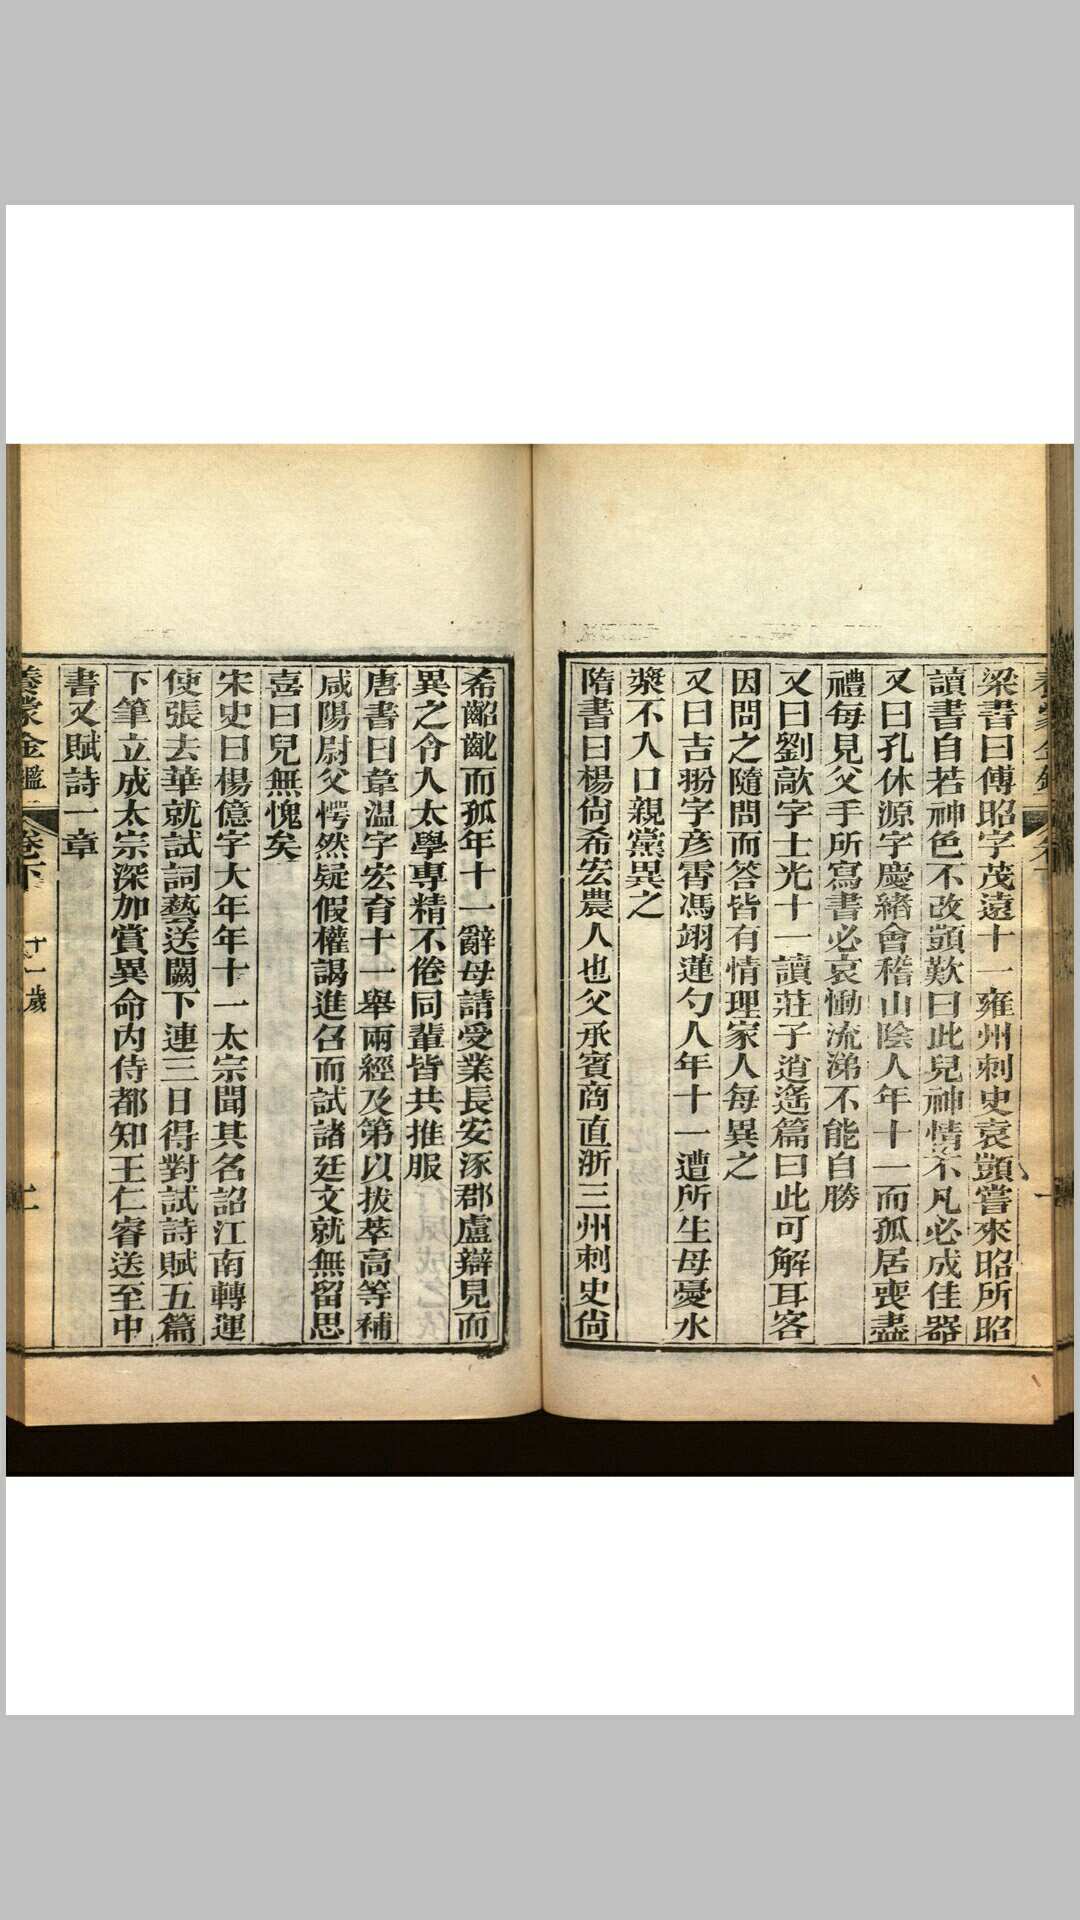 梁書曰傅昭字茂遠十一雍州刺史袁顗嘗來昭所昭
讀書自若神色不改顗歎曰此兒神情不凡必成佳器
又曰孔休源字慶緒會稽山陰人年十一而孤居喪盡
禮每見父手所寫書必哀慟流涕不能自勝
又曰劉歊字士光十一讀莊子逍遙篇曰此可解耳客
因問之隨問而答皆有情理家人每異之
又曰吉翂字彥霄馮翊蓮勺人年十一遭所生母憂水
漿不入口親黨異之
隋書曰楊尙希宏農人也父承賓商直浙三州刺史尙
希齠齔而孤年十一辭母請受業長安涿郡盧辯見而
異之令入太學專精不倦同輩皆共推服
唐書曰韋溫字宏育十一舉兩經及第以拔萃高等補
咸陽尉父愕然疑假權謁進召而試諸廷文就無留思
喜曰兒無愧矣
宋史曰楊億字大年年十一太宗聞其名詔江南轉運
使張去華就試詞藝送闕下連三日得對試詩賦五篇
下筆立成太宗深加賞異命内侍都知王仁睿送至中
書又賦詩一章
養蒙金鑑 卷下 十一歲